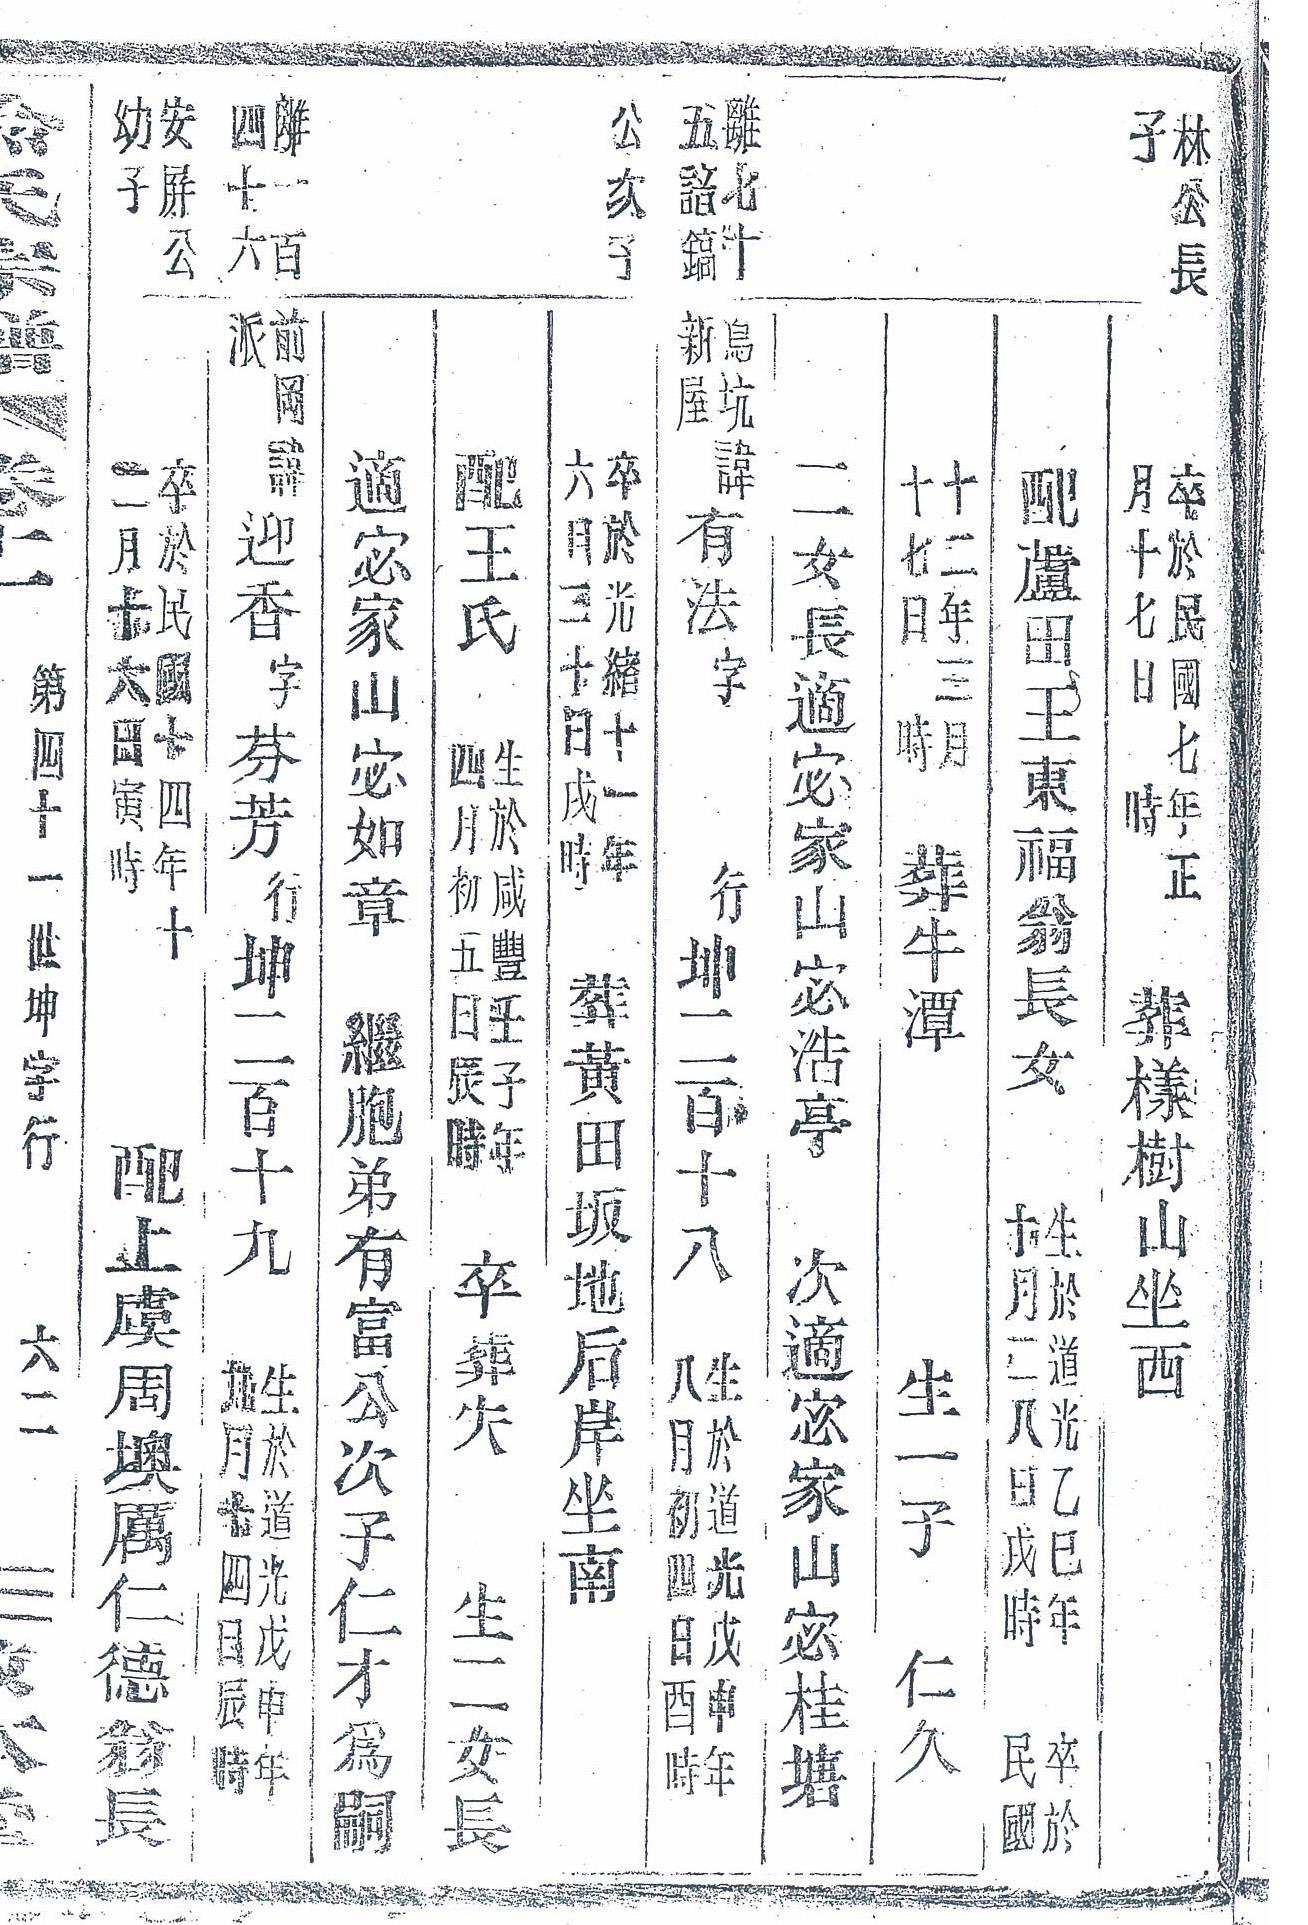 林公長
子
卒於民國七年正
月十七日　時
葬樣樹山坐西
配蘆田王東福翁長女
生於道光乙巳年
十月二八日戌時
卒於
民國
十二年三月
十七日　時
葬牛潭
生一子
仁久
二女長適宓家山宓浩亭
次適宓家山宓桂塘
離七十
五諮鎬
公次子
烏坑
新屋
諱有法字
行坤二百十八
生於道光戊申年
八月初四日酉時
卒於光緒十一年
六日三十日戌時
葬黃田坂地后岸坐南
配王氏
生於咸豐壬子年
四月初五日辰時
卒葬失
生二女長
適宓家山宓如章
繼胞弟有富公次子仁才爲嗣
離一百
四十六
安屏公
幼子
前岡
派
諱迎香字芬芳行坤二百十九
生於道光戊申年
九月十四日辰時
卒於民國十四年十
二月十六日寅時
配上虞周墺厲仁德翁長
卷二
第四十一世坤字行
六二